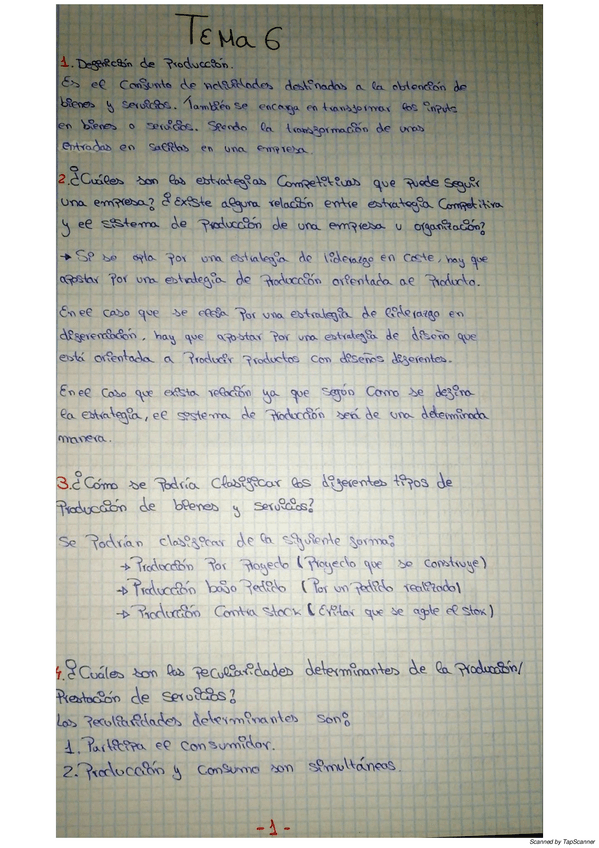 TEMA 6
1. Definición de Producción.
Es el conjunto de actividades destinadas a la obtención de
bienes y servicios. También se encarga en transformar los inputs
en bienes o servicios. Siendo la transformación de unas
entradas en salidas en una empresa
2. ¿Cuáles son las estrategias Competitivas que puede seguir
una empresa? ¿Existe alguna relación entre estrategia Competitiva
y el sistema de Producción de una empresa u organización?
→ Si se opta por una estrategia de liderazgo en coste, hay que
apostar por una estrategia de Producción orientada al Producto.
En el caso que se elija por una estrategia de liderazgo en
diferenciación, hay que apostar por una estrategia de diseño que
está orientada a Producir Productos con diseños diferentes.
En el caso que exista relación ya que según como se defina
la estrategia, el sistema de Producción será de una determinada
manera.
3. ¿Cómo se Podría Clasificar los diferentes tipos de
Producción de bienes y servicios?
Se Podrían clasificar de la siguiente forma:
→ Producción Por Proyecto (Proyecto que se construye)
→ Producción bajo Pedido (Por un Pedido realizado)
→ Producción Contra Stock (Evitar que se agote el stox)
4. ¿Cuáles son las Peculiaridades determinantes de la Producción/
Prestación de servicios?
Las Peculiaridades determinantes son:
1. Participa el consumidor.
2. Producción y consumo son simultáneas.
-1-
Scanned by TapScanner